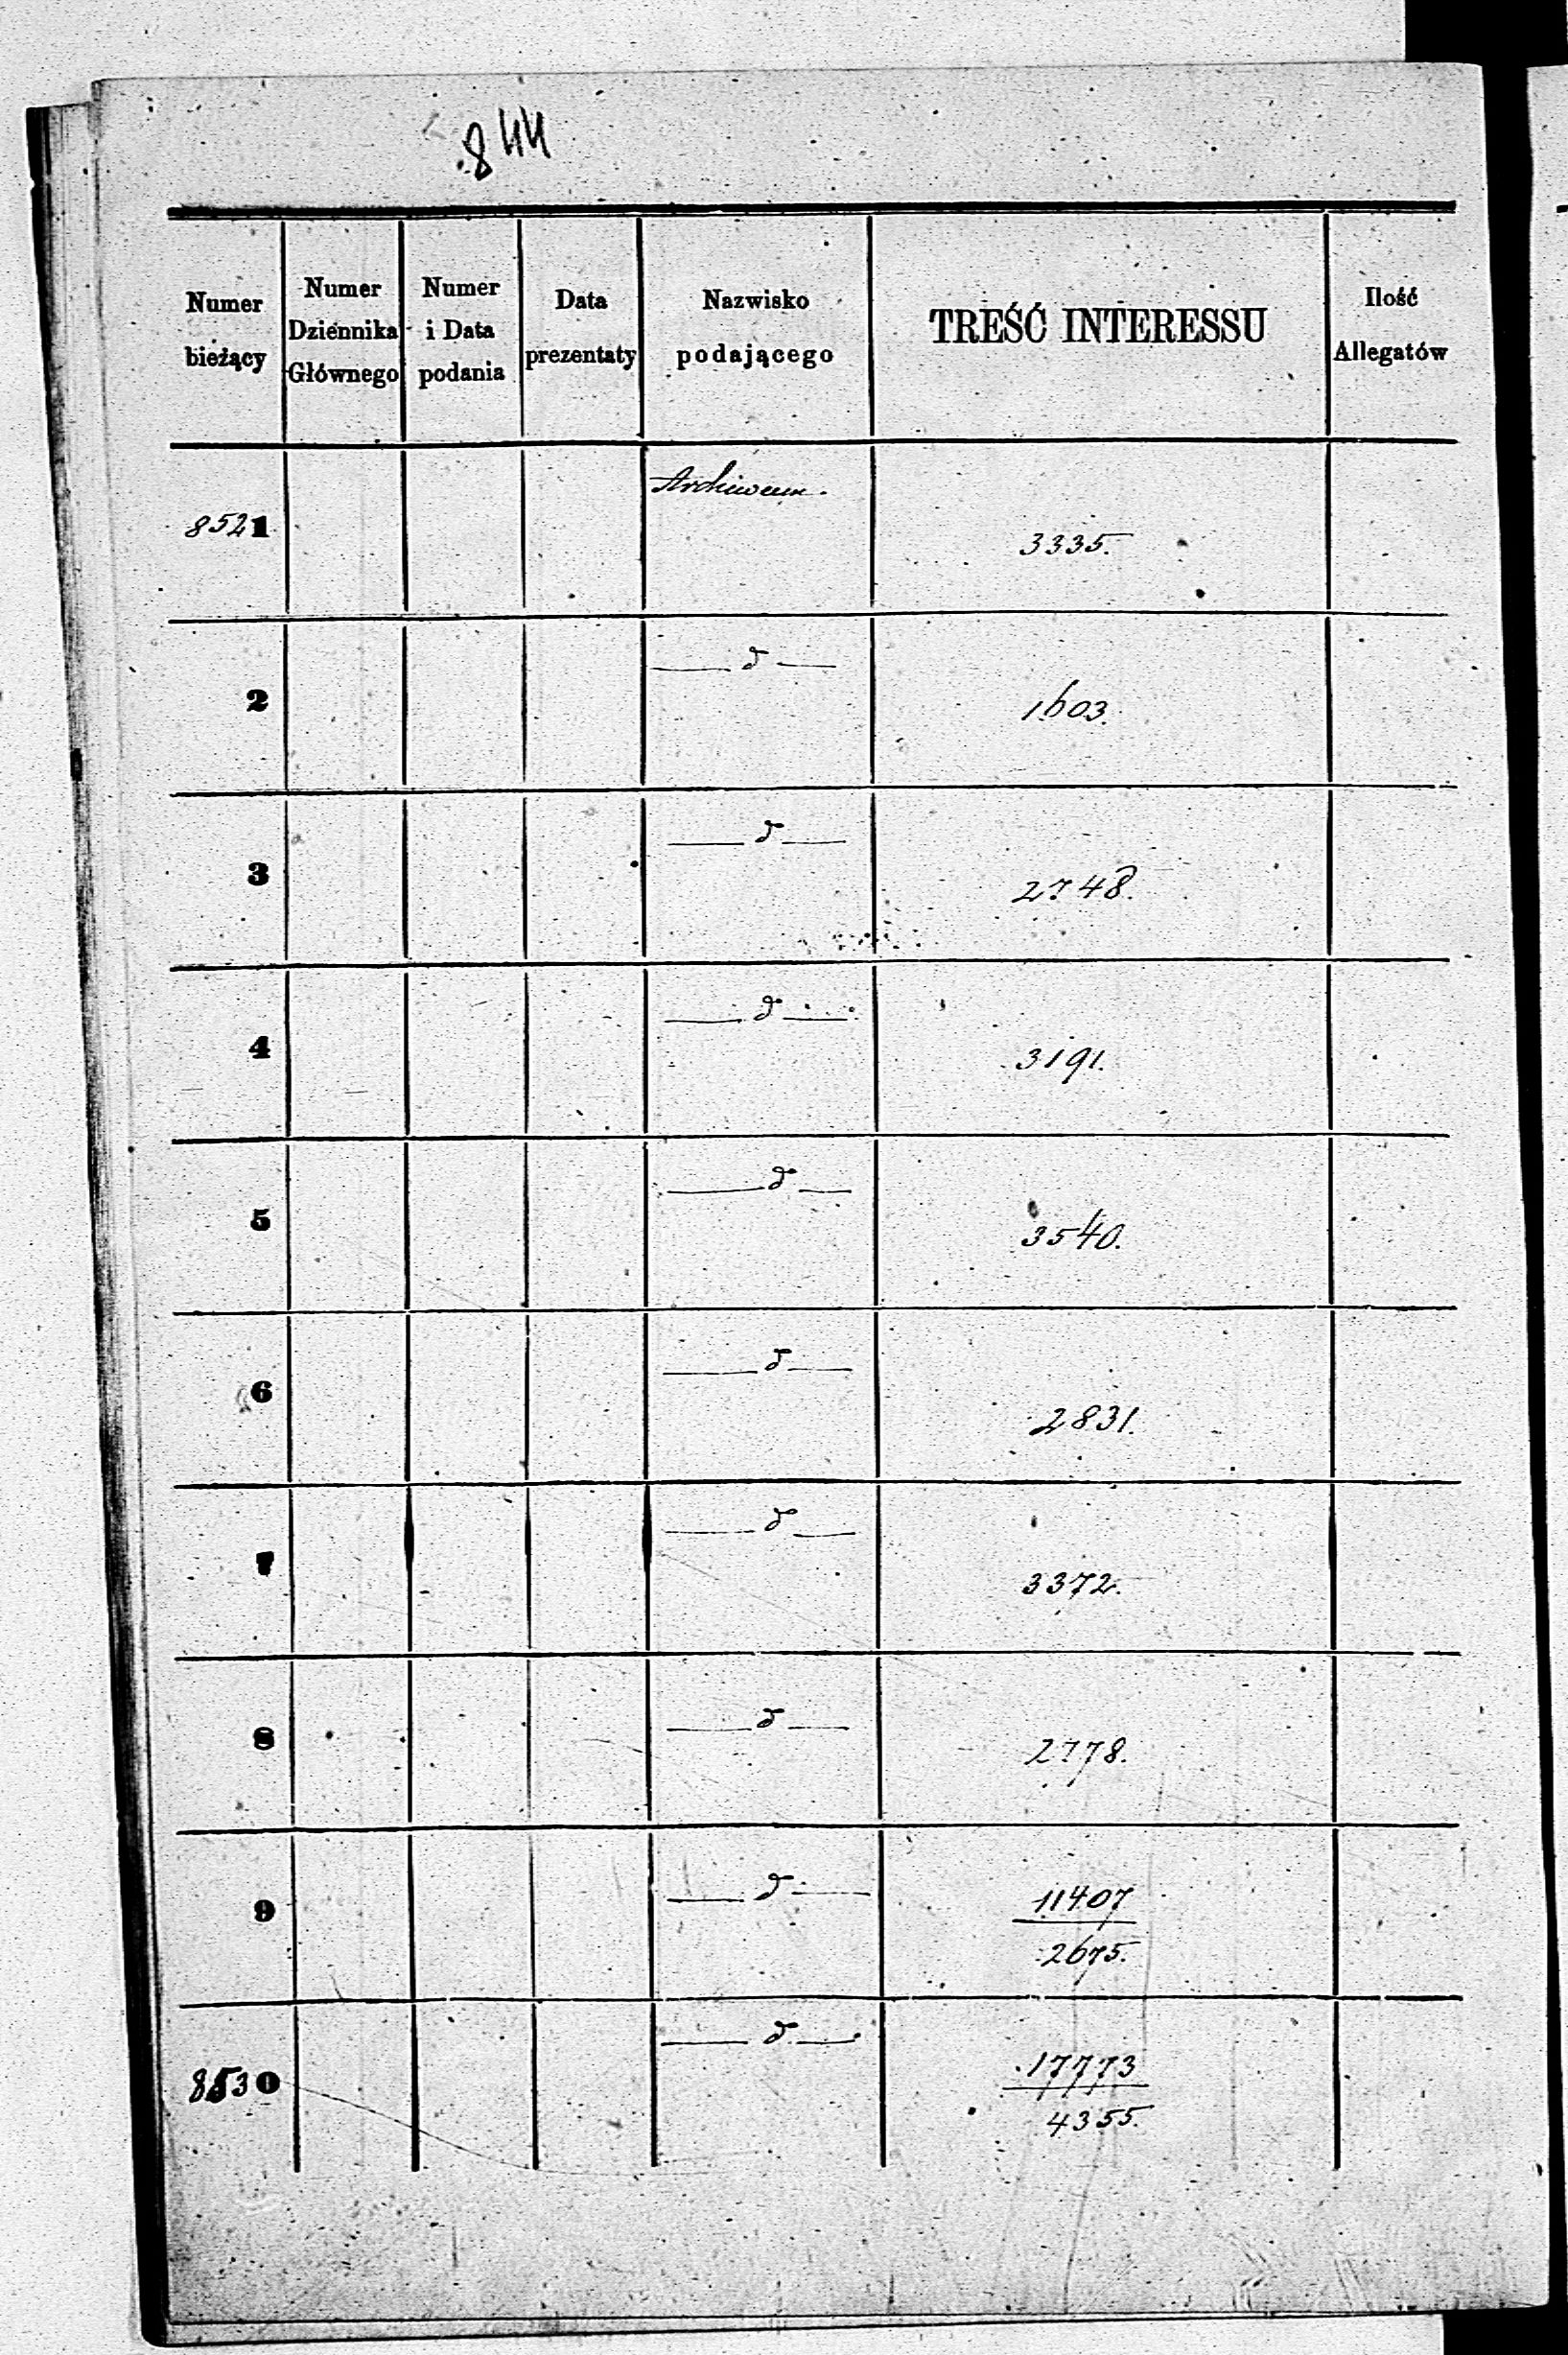 844
Numer bieżący | Numer Dziennika Głównego | Numer i Data podania | Data prezentaty | Nazwisko podającego | TREŚĆ INTERESSU | Ilość Allegatów
8521 | Archiwum. | 3335.
2 | — d — | 1603.
3 | — d — | 2748.
4 | — d — | 3191.
5 | — d — | 3540.
6 | — d — | 2831.
7 | — d — | 3372.
8 | — d — | 2778.
9 | — d — | 11407
2675.
8530 | — d — | 17773
4355.